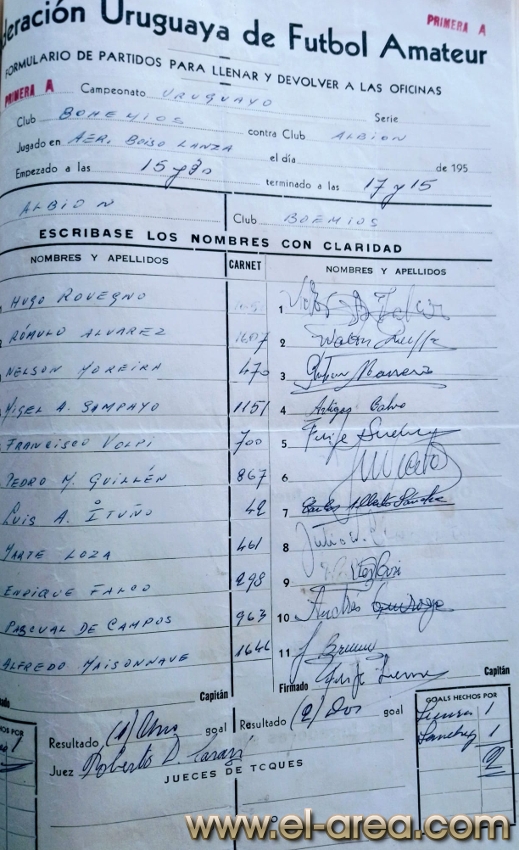 PRIMERA A
deración Uruguaya de Futbol Amateur
FORMULARIO DE PARTIDOS PARA LLENAR Y DEVOLVER A LAS OFICINAS
PRIMERA A Campeonato URUGUAYO Serie
Club BOHEMIOS contra Club ALBION
Jugado en AER. BOISO LANZA el día de 195
Empezado a las 15 y 30 terminado a las 17 y 15
ALBION Club BOEMIOS
ESCRIBASE LOS NOMBRES CON CLARIDAD
NOMBRES Y APELLIDOS CARNET NOMBRES Y APELLIDOS
HUGO ROVEGNO 1
RÓMULO ALVAREZ 1607 2 Walter
NELSON MOREIRA 470 3
MIGEL A. SAMPAYO 1151 4 Artigas Calvo
FRANCISCO VOLPI 700 5
PEDRO M. GUILLÉN 867 6
LUIS A. ITUÑO 42 7 Carlos Alberto Sánchez
MARTE LOZA 461 8 Julio
ENRIQUE FALCO 298 9
PASCUAL DE CAMPOS 963 10 Andrés Quiroga
ALFREDO MAISONNAVE 1646 11
Capitán Firmado Capitán
Resultado (1) Uno goal Resultado (2) Dos goal
GOALS HECHOS POR
1
Sanchez 1
2
Juez Roberto D.
JUECES DE TOQUES
www.el-area.com